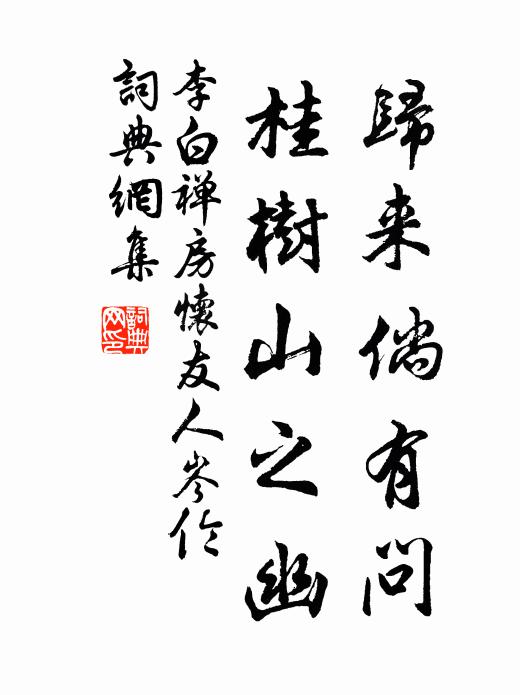 歸来倘有問
桂樹山之幽
李白禅房懷友人岑伦
詞典網集
詞典网印